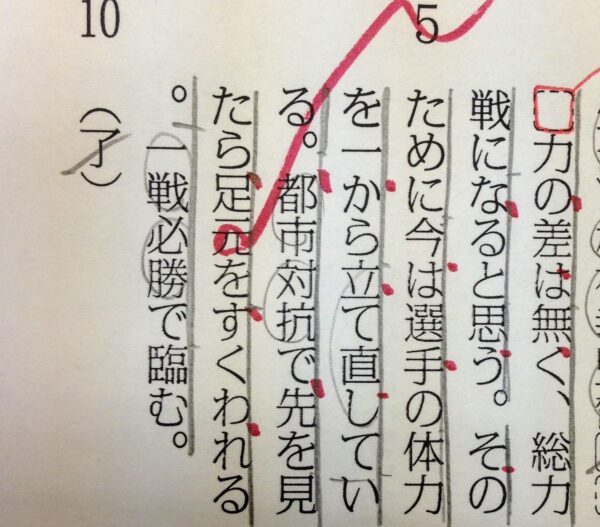 力の差は無く、総力
戦になると思う。その
5
ために今は選手の体力
を一から立て直してい
る。都市対抗で先を見
たら足元をすくわれる
。一戦必勝で臨む。
10
（了）